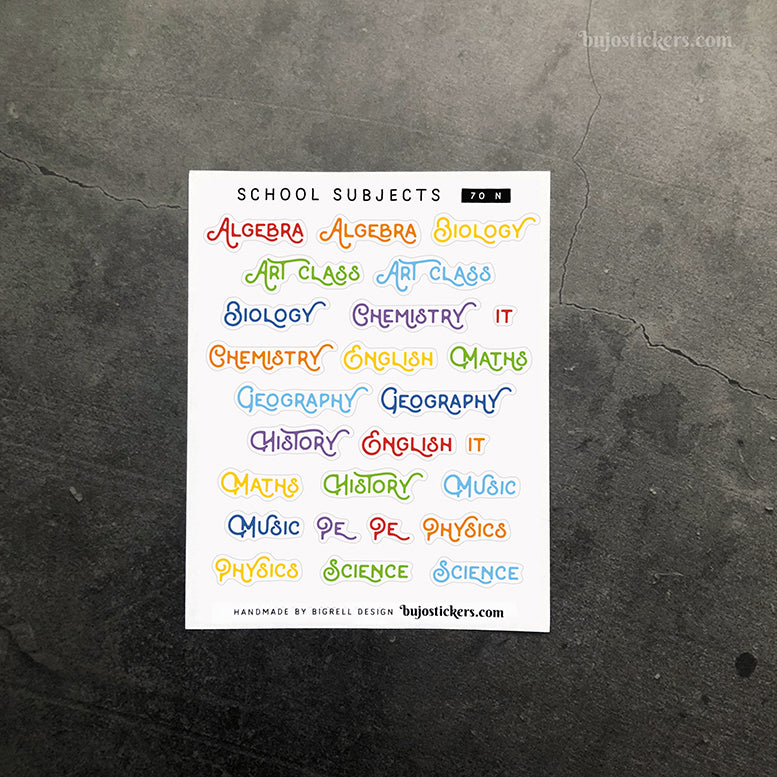 bujostickers.com
SCHOOL SUBJECTS 70 N
ALGEBRA ALGEBRA BIOLOGY
ART CLASS ART CLASS
BIOLOGY CHEMISTRY IT
CHEMISTRY ENGLISH MATHS
GEOGRAPHY GEOGRAPHY
HISTORY ENGLISH IT
MATHS HISTORY MUSIC
MUSIC PE PE PHYSICS
PHYSICS SCIENCE SCIENCE
HANDMADE BY BIGRELL DESIGN bujostickers.com